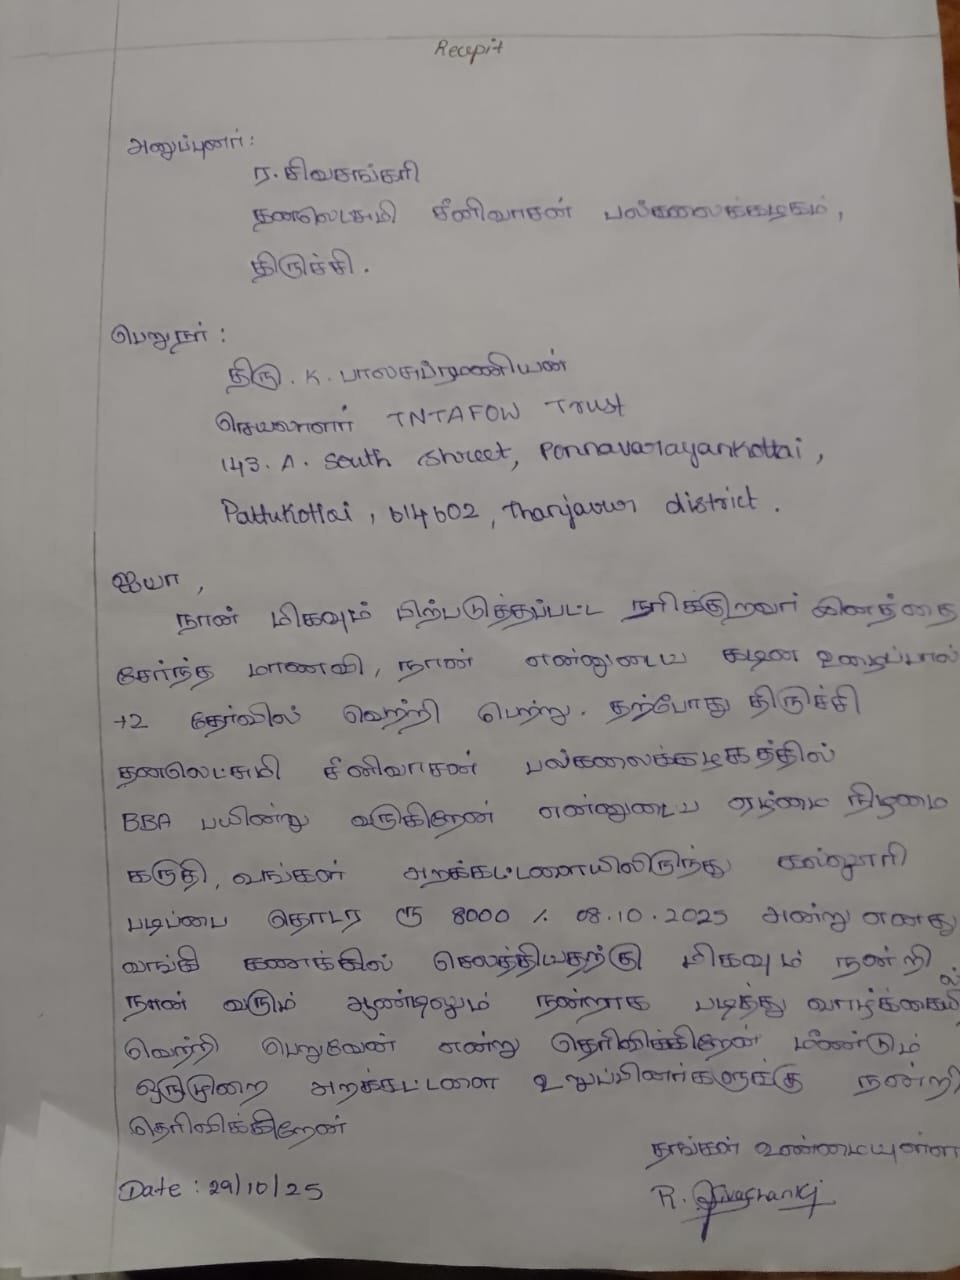 Recepit
அனுப்புனர்:
ர. சிவசங்கரி
தனலெட்சுமி சீனிவாசன் பல்கலைக்கழகம்,
திருச்சி.
பெறுநர் :
திரு. K. பாலசுப்ரமணியன்
செயலாளர் TNTAFOW Trust
143. A. South Street, Ponnavarayankottai,
Pattukottai, 614602, Thanjavur district.
ஐயா,
நான் மிகவும் பிற்படுத்தப்பட்ட நரிக்குறவர் இனத்தை
சேர்ந்த மாணவி, நான் என்னுடைய கடின உழைப்பால்
+2 தேர்வில் வெற்றி பெற்று. தற்போது திருச்சி
தனலெட்சுமி சீனிவாசன் பல்கலைக்கழகத்தில்
BBA பயின்று வருகிறேன் என்னுடைய ஏழ்மை நிழமை
கருதி, உங்கள் அறக்கட்டளையிலிருந்து கல்லூரி
படிப்பை தொடர ரூ 8000 /. 08.10.2025 அன்று எனது
வங்கி கணக்கில் செலுத்தியதற்கு மிகவும் நன்றி
நான் வரும் ஆண்டிலும் நன்றாக படித்து வாழ்க்கையில்
வெற்றி பெறுவேன் என்று தெரிவிக்கிறேன் மீண்டும்
ஒருமுறை அறக்கட்டளை உறுப்பினர்களுக்கு நன்றி
தெரிவிக்கிறேன்
தங்கள் உண்மையுள்ள
Date : 29/10/25
R. Sivashankj